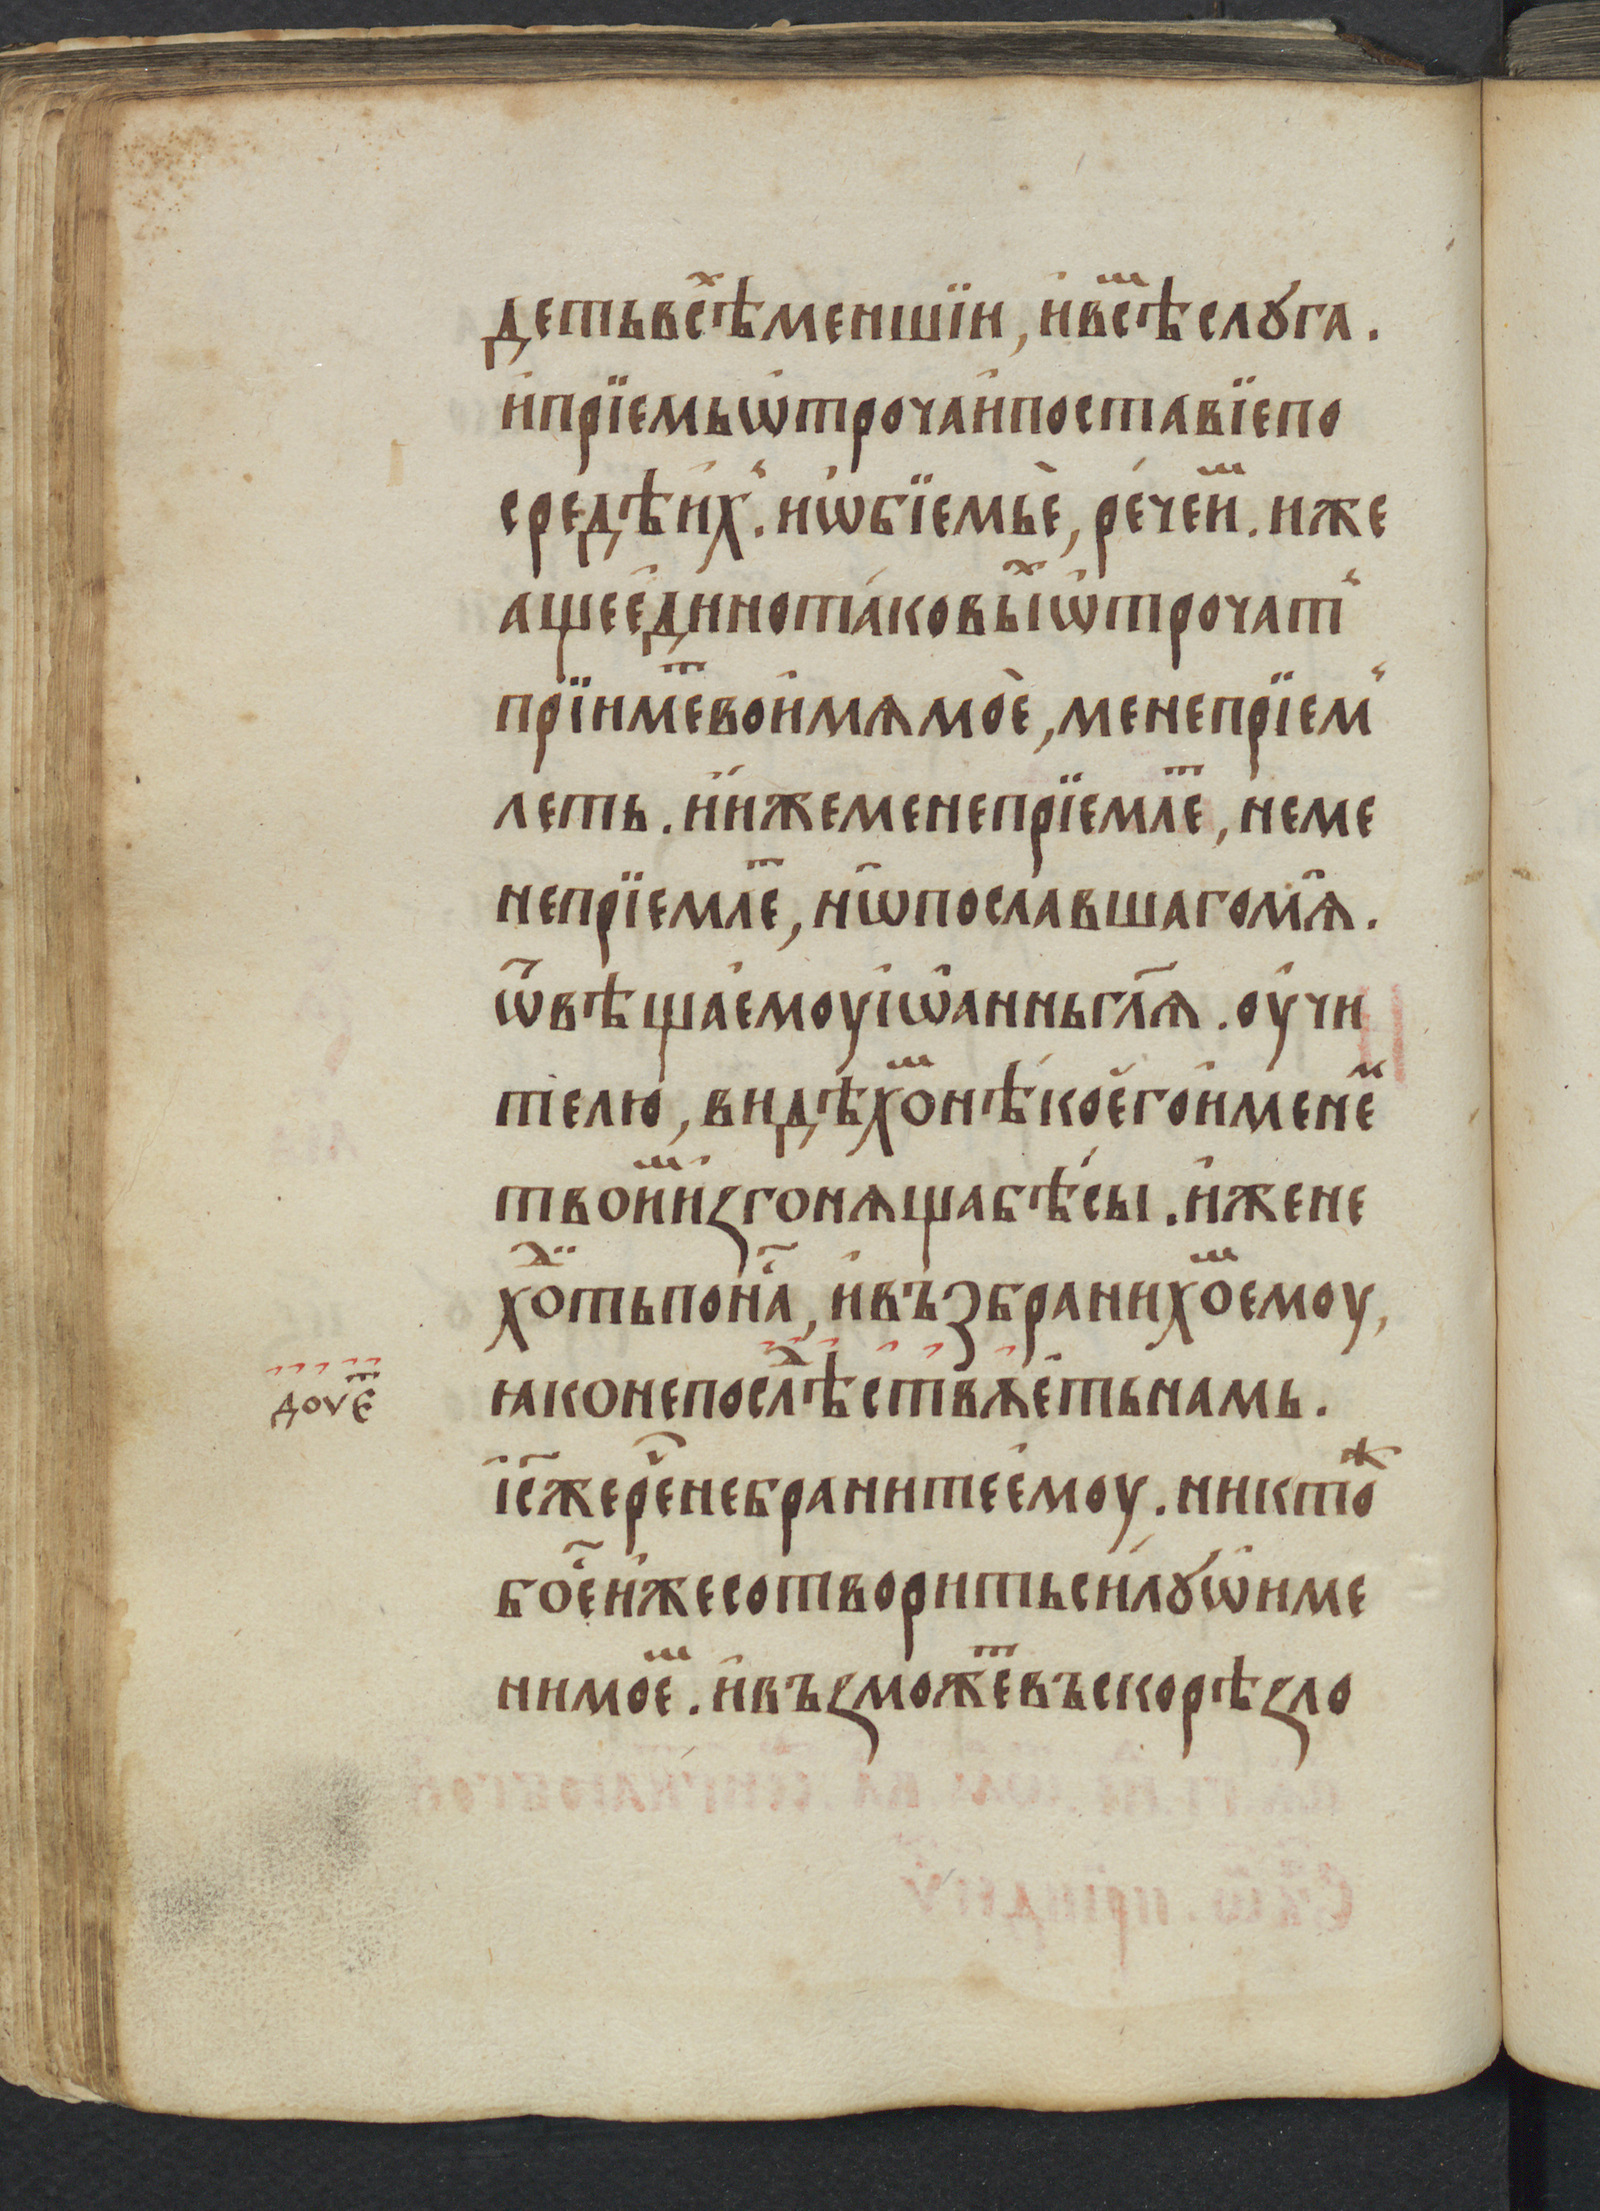 деть всѣⷯ меншїи, и҆ всѣⷨ слꙋга.
и҆ прїемь ѡ҆троча и҆ постави ѐ по
средѣ и҆хъ. и ѡ҆бїемь ѐ, рече и҆ⷨ. иже
аще е҆дино таковы́ⷯ ѡ҆трочатъ
прїимеⷮ во и҆мѧ моѐ, мене прїем
леть. и҆ иже мене прїемлеⷮ, не ме
не прїемлеⷮ, нѡ пославшаго мѧ̀.
ѿвѣща е҆моу і҆ѡ҆аннь гл҃ѧ. оу҆чи
телю, видѣхоⷨ нѣкоего и҆менеⷨ
твоиⷨ и҆ꙁгонѧща бѣсы. и҆же не
хоⷣть по на́ⷭ, и҆ възбранихоⷨ е҆моу,
ꙗко не послѣⷣствꙋеть намь.
і҆с҃ же реⷱ҇ не браните е҆моу. никтоⷤ
бо еⷭ҇ и҆же сотворить силꙋ ѡ҆ име
ни моеⷨ. и҆ въꙁможеⷮ въскорѣ ꙁло
доуеⷮ